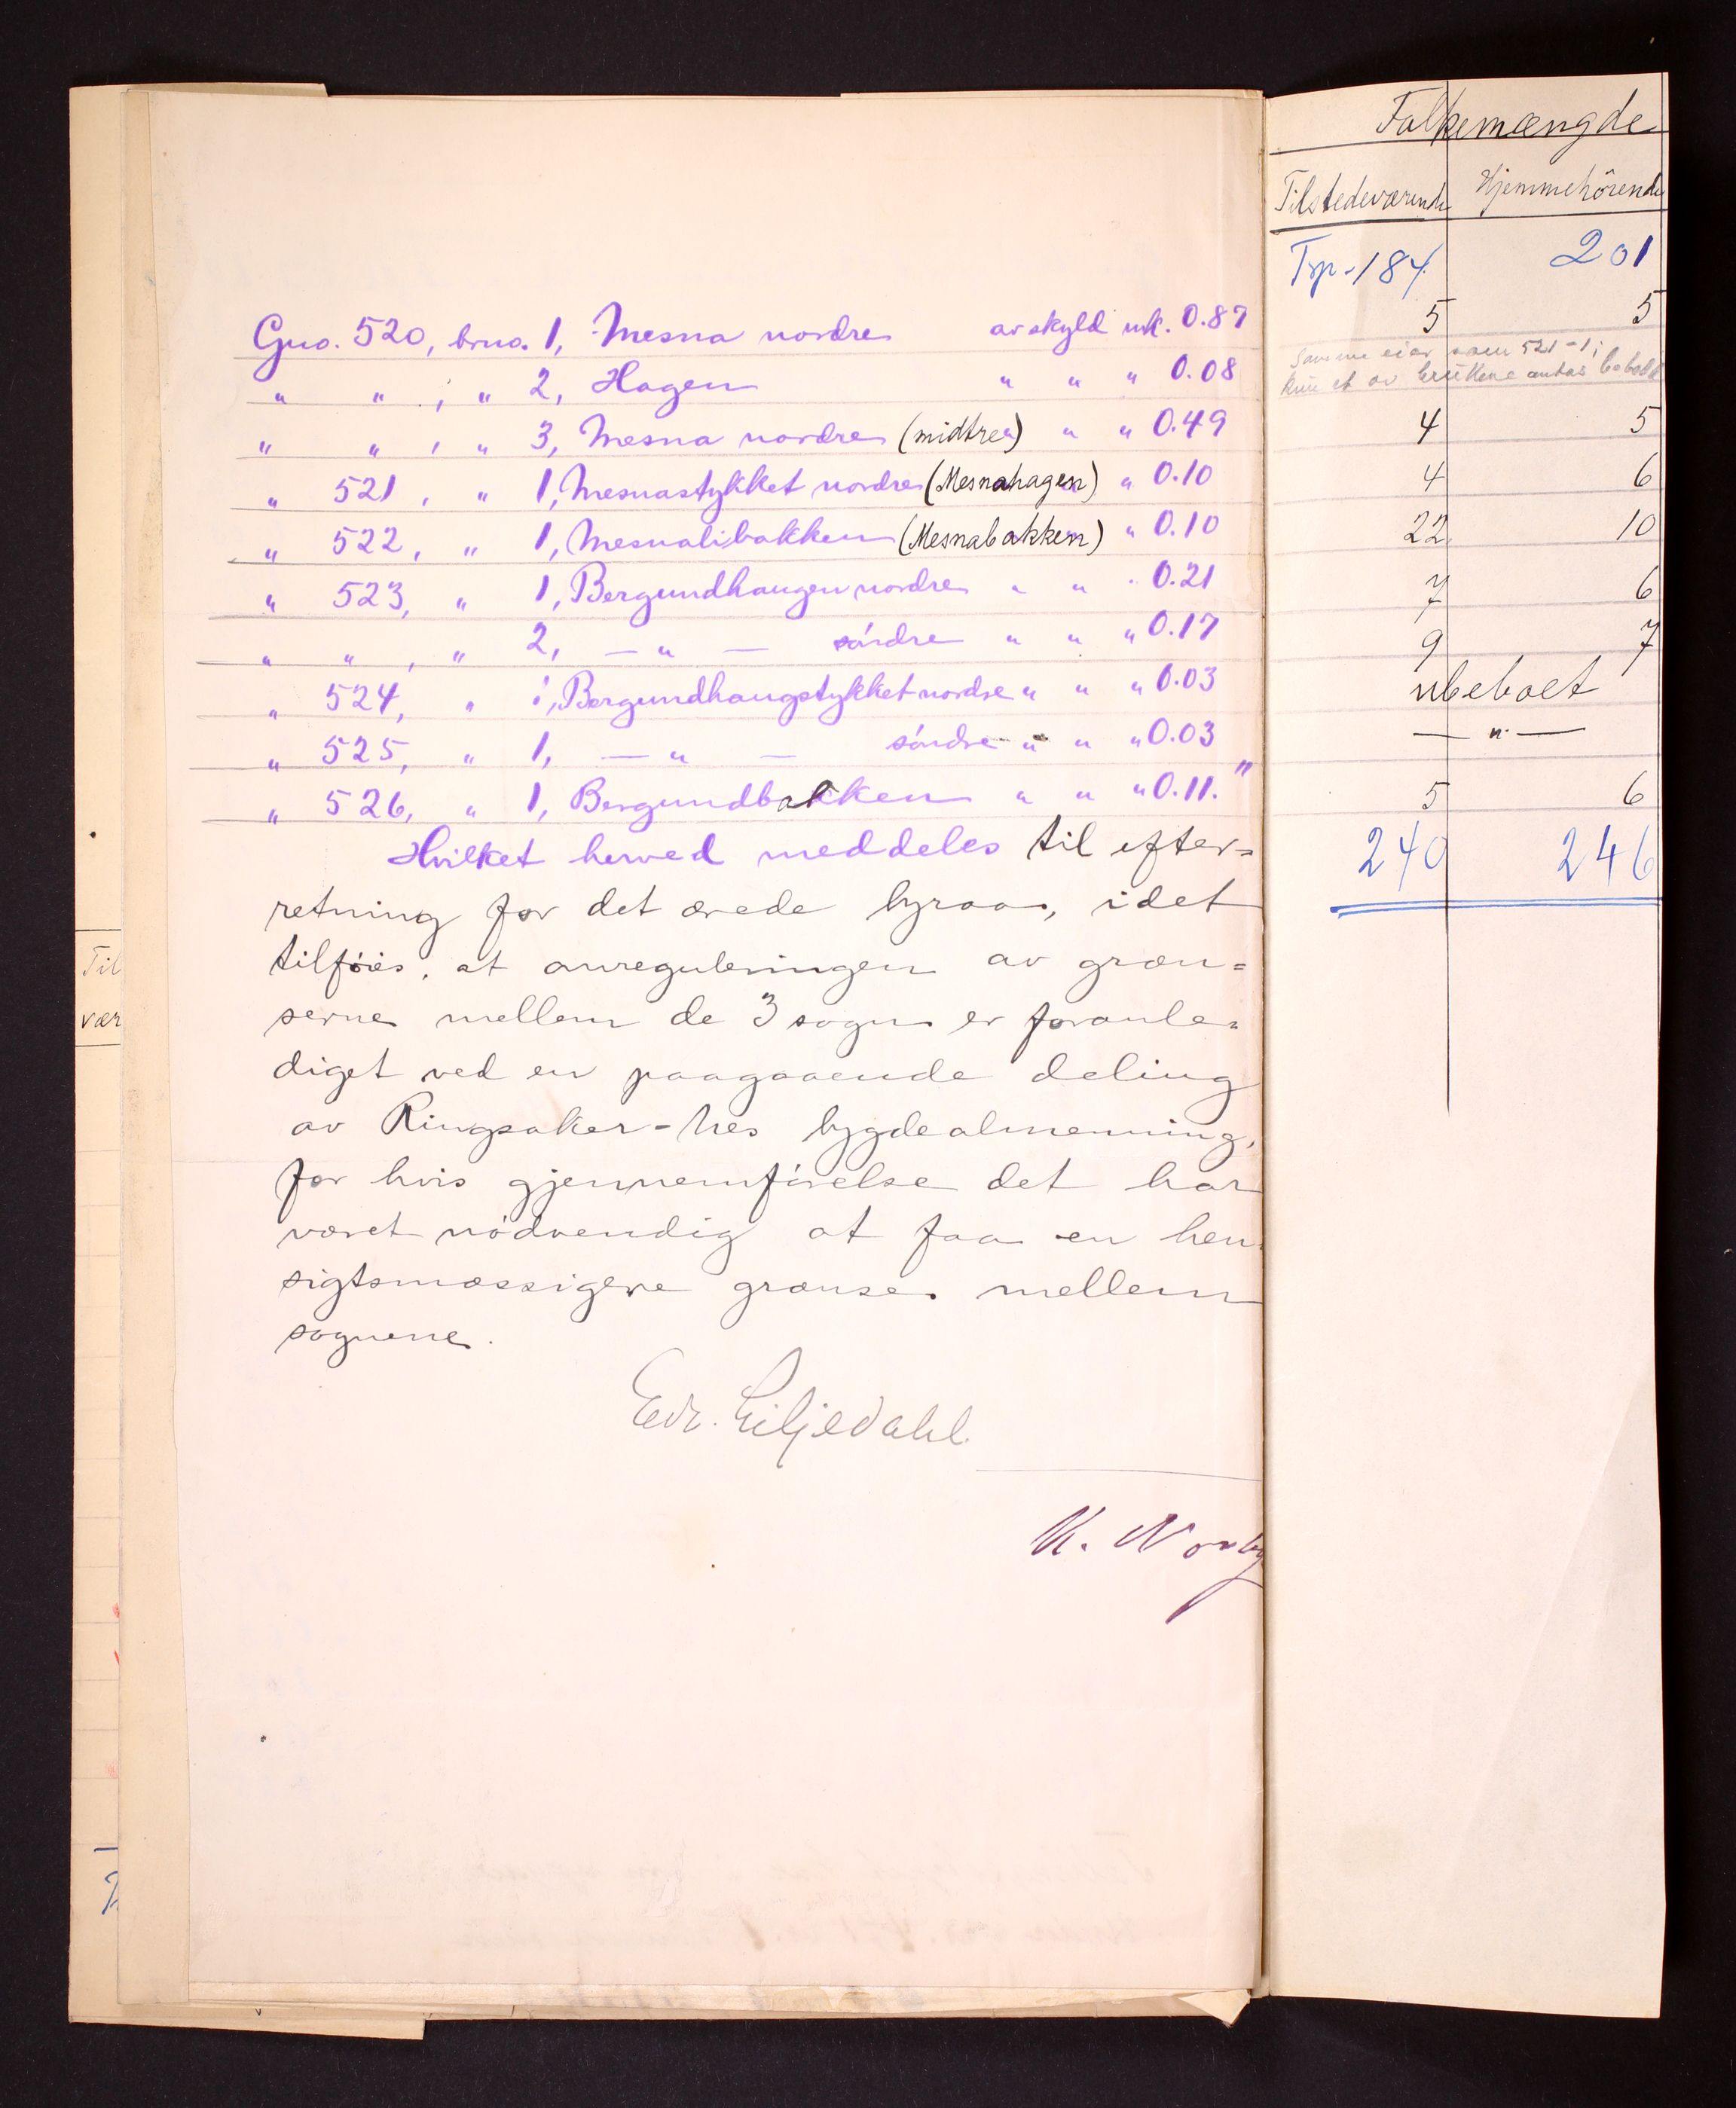 Gno. 520, bruo. 1, Mesna nordre av skyld mk. 0.87
" " , " 2, Hagen " " " 0.08
" " , " 3, Mesna nordre (midtre) " " 0.49
" 521, " 1, Mesnastykket nordre (Mesnahagen) " 0.10
" 522, " 1, Mesnalibakken (Mesnabakken) " 0.10
" 523, " 1, Bergundhaugen nordre " " " 0.21
" " , " 2, — " — söndre " " " 0.17
" 524, " 1, Bergundhaugstykket nordre " " " 0.03
" 525, " 1, — " — söndre " " " 0.03
" 526, " 1, Bergundbakken " " " 0.11."
Hvilket herved meddeles til efter=
retning for det ærede byraa, idet
tilföies, at omreguleringen av græn=
serne mellem de 3 sogn er foranle=
diget ved en paagaaende deling
av Ringsaker-Nes bygdealmenning,
for hvis gjennemförelse det har
været nödvendig at faa en hen=
sigtsmæssigere grænse mellem
sognene.
Edv. Liljedahl
K. Norby
Folkemængde
Tilstedeværende Hjemmehörende
Trp. 184 201
5 5
Samme eier som 521-1;
kun et av brukene antas bebodd
4 5
4 6
22 10
7 6
9 7
ubeboet
— " —
5 6
240 246
Til
vær